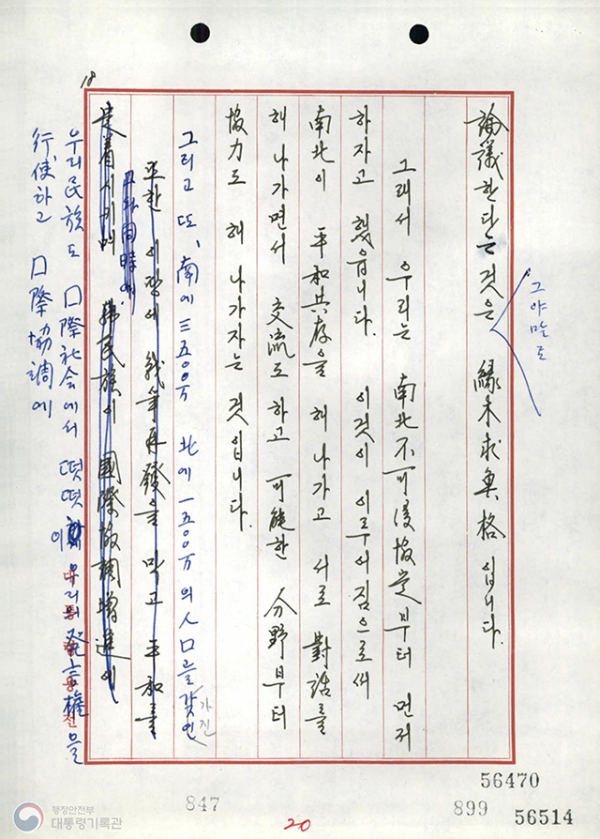 18
論議한다는것은 緣木求魚格입니다.
그야말로
그래서 우리는 南北不可侵協定부터 먼저
하자고 했읍니다. 이것이 이루어짐으로써
南北이 平和共存을 해 나가고 서로 對話를
해 나가면서 交流도 하고 可能한 分野부터
協力도 해 나가자는 것입니다.
그리고 또, 南에 三五〇〇万 北에 一五〇〇万의 人口를 갖인
가진
또한 이 땅에 戰爭再發을 막고 平和를
그와 同時에,
定着시키며 韓民族이 國際協調增進에
우리 民族도 口際社会에서 떳떳이 우리의 発言權을
行使하고 口際協調에
847
20
899
56470
56514
행정안전부
대통령기록관